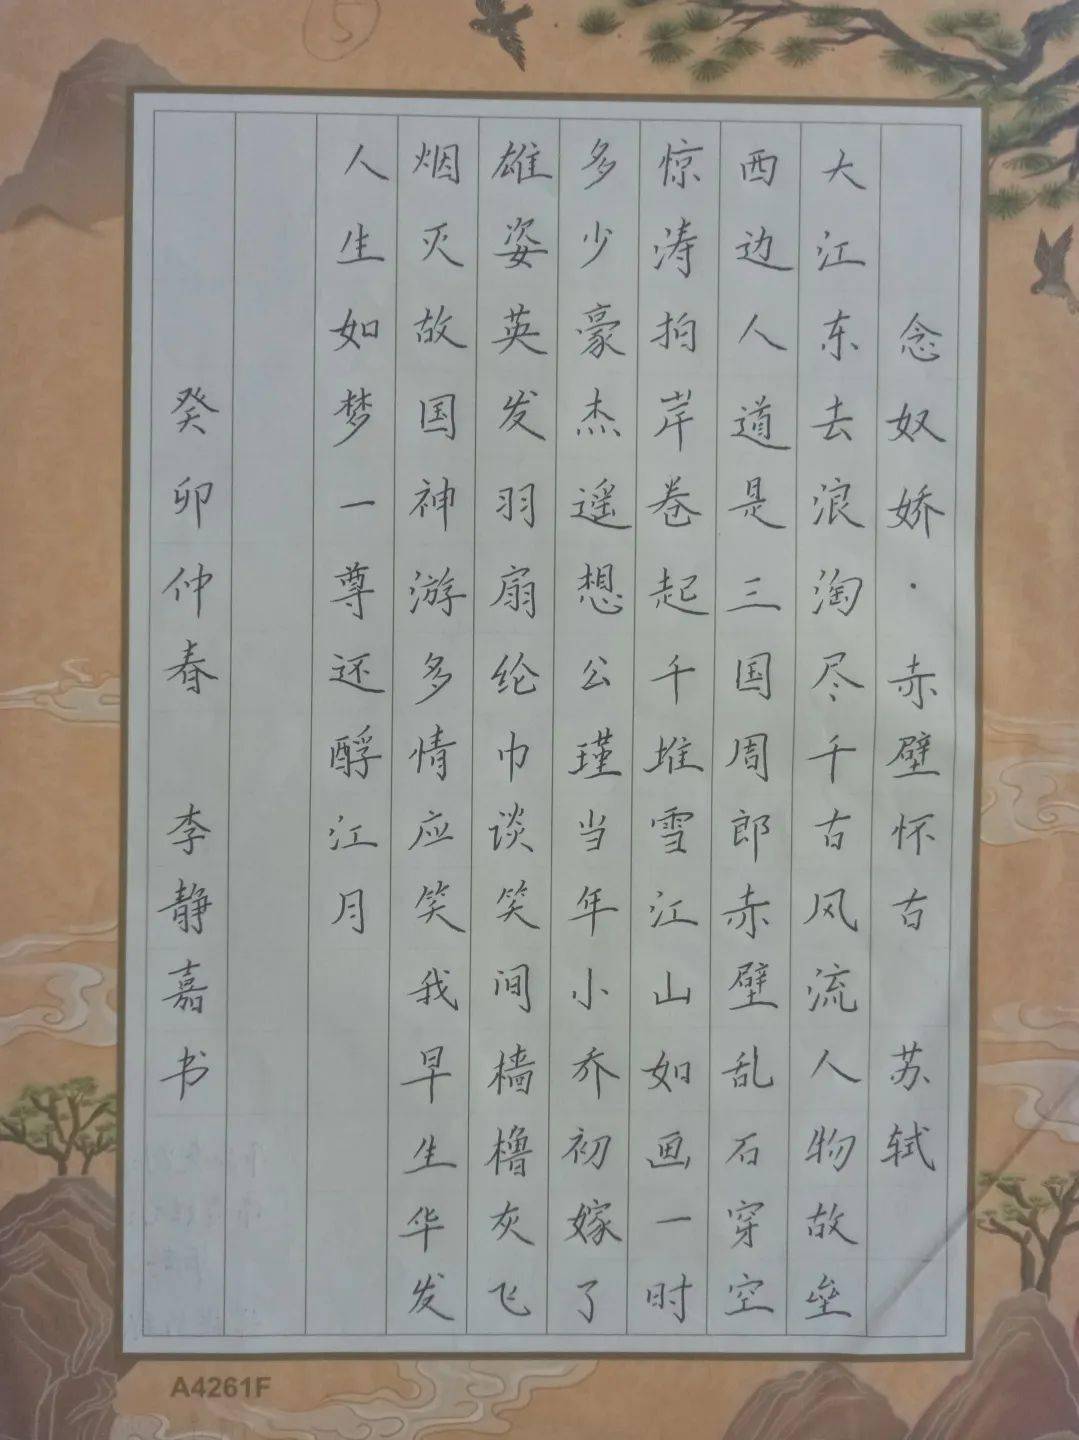 5
念奴娇·赤壁怀古 苏轼
大江东去浪淘尽千古风流人物故垒
西边人道是三国周郎赤壁乱石穿空
惊涛拍岸卷起千堆雪江山如画一时
多少豪杰遥想公瑾当年小乔初嫁了
雄姿英发羽扇纶巾谈笑间樯橹灰飞
烟灭故国神游多情应笑我早生华发
人生如梦一尊还酹江月
癸卯仲春 李静嘉书
A4261F